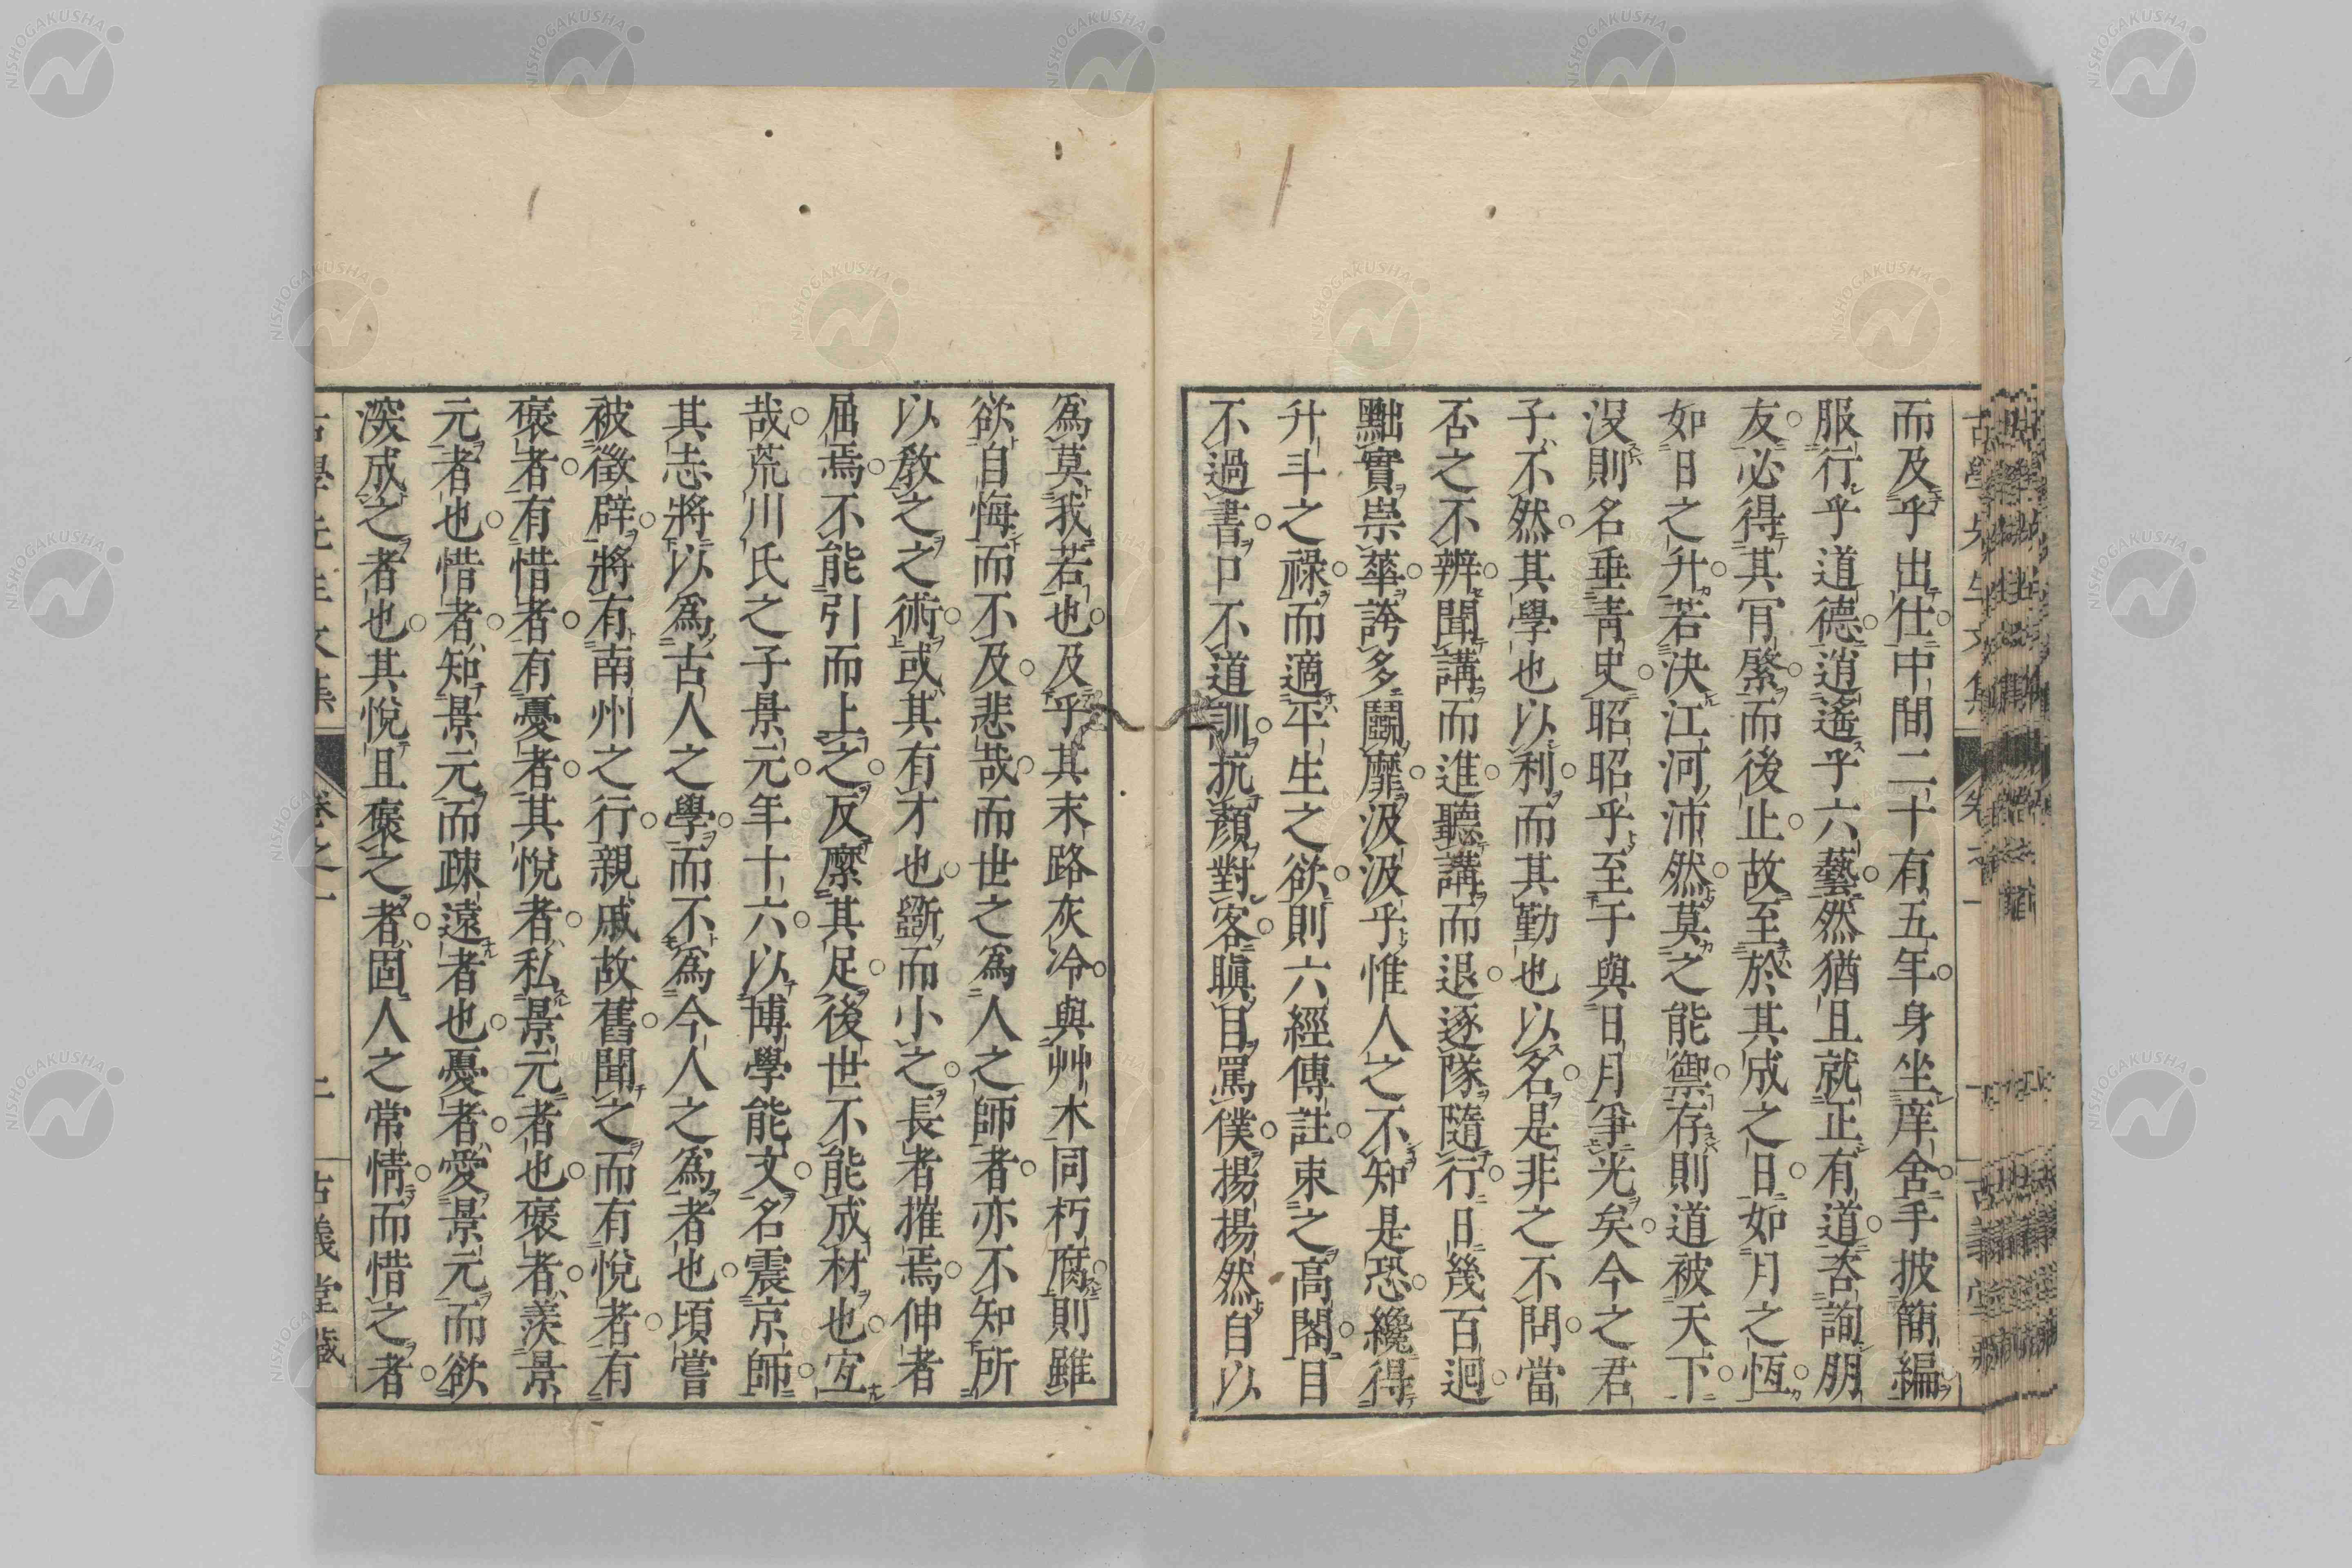 而及乎出仕中間二十有五年身坐庠舍手披簡編
服行乎道德逍遙乎六藝然猶且就正有道咨詢朋
友必得其肯綮而後止故至於其成之日如月之恆
如日之升若決江河沛然莫之能禦存則道被天下
沒則名垂靑史昭昭乎至于與日月爭光矣今之君
子不然其學也以利而其勤也以名是非之不問當
否之不辨聞講而進聽講而退逐隊隨行日幾百迴
黜實崇華誇多鬪靡汲汲乎惟人之不知是恐纔得
升斗之祿而適平生之欲則六經傳註束之高閣目
不過書口不道訓抗顏對客瞋目罵僕揚揚然自以
爲莫我若也及乎其末路灰冷與艸木同朽腐則雖
欲自悔而不及悲哉而世之爲人之師者亦不知所
以敎之之術或其有才也斷而小之長者摧焉伸者
屈焉不能引而上之反縻其足後世不能成材也宜
哉荒川氏之子景元年十六以博學能文名震京師
其志將以爲古人之學而不爲今人之爲者也頃嘗
被徵辟將有南州之行親戚故舊聞之而有悅者有
褒者有惜者有憂者其悅者私景元者也褒者羨景
元者也惜者知景元而疎遠者也憂者愛景元而欲
深成之者也其悅且褒之者固人之常情而惜之者
古學先生文集 卷之一 二 古義堂藏
NISHOGAKUSHA